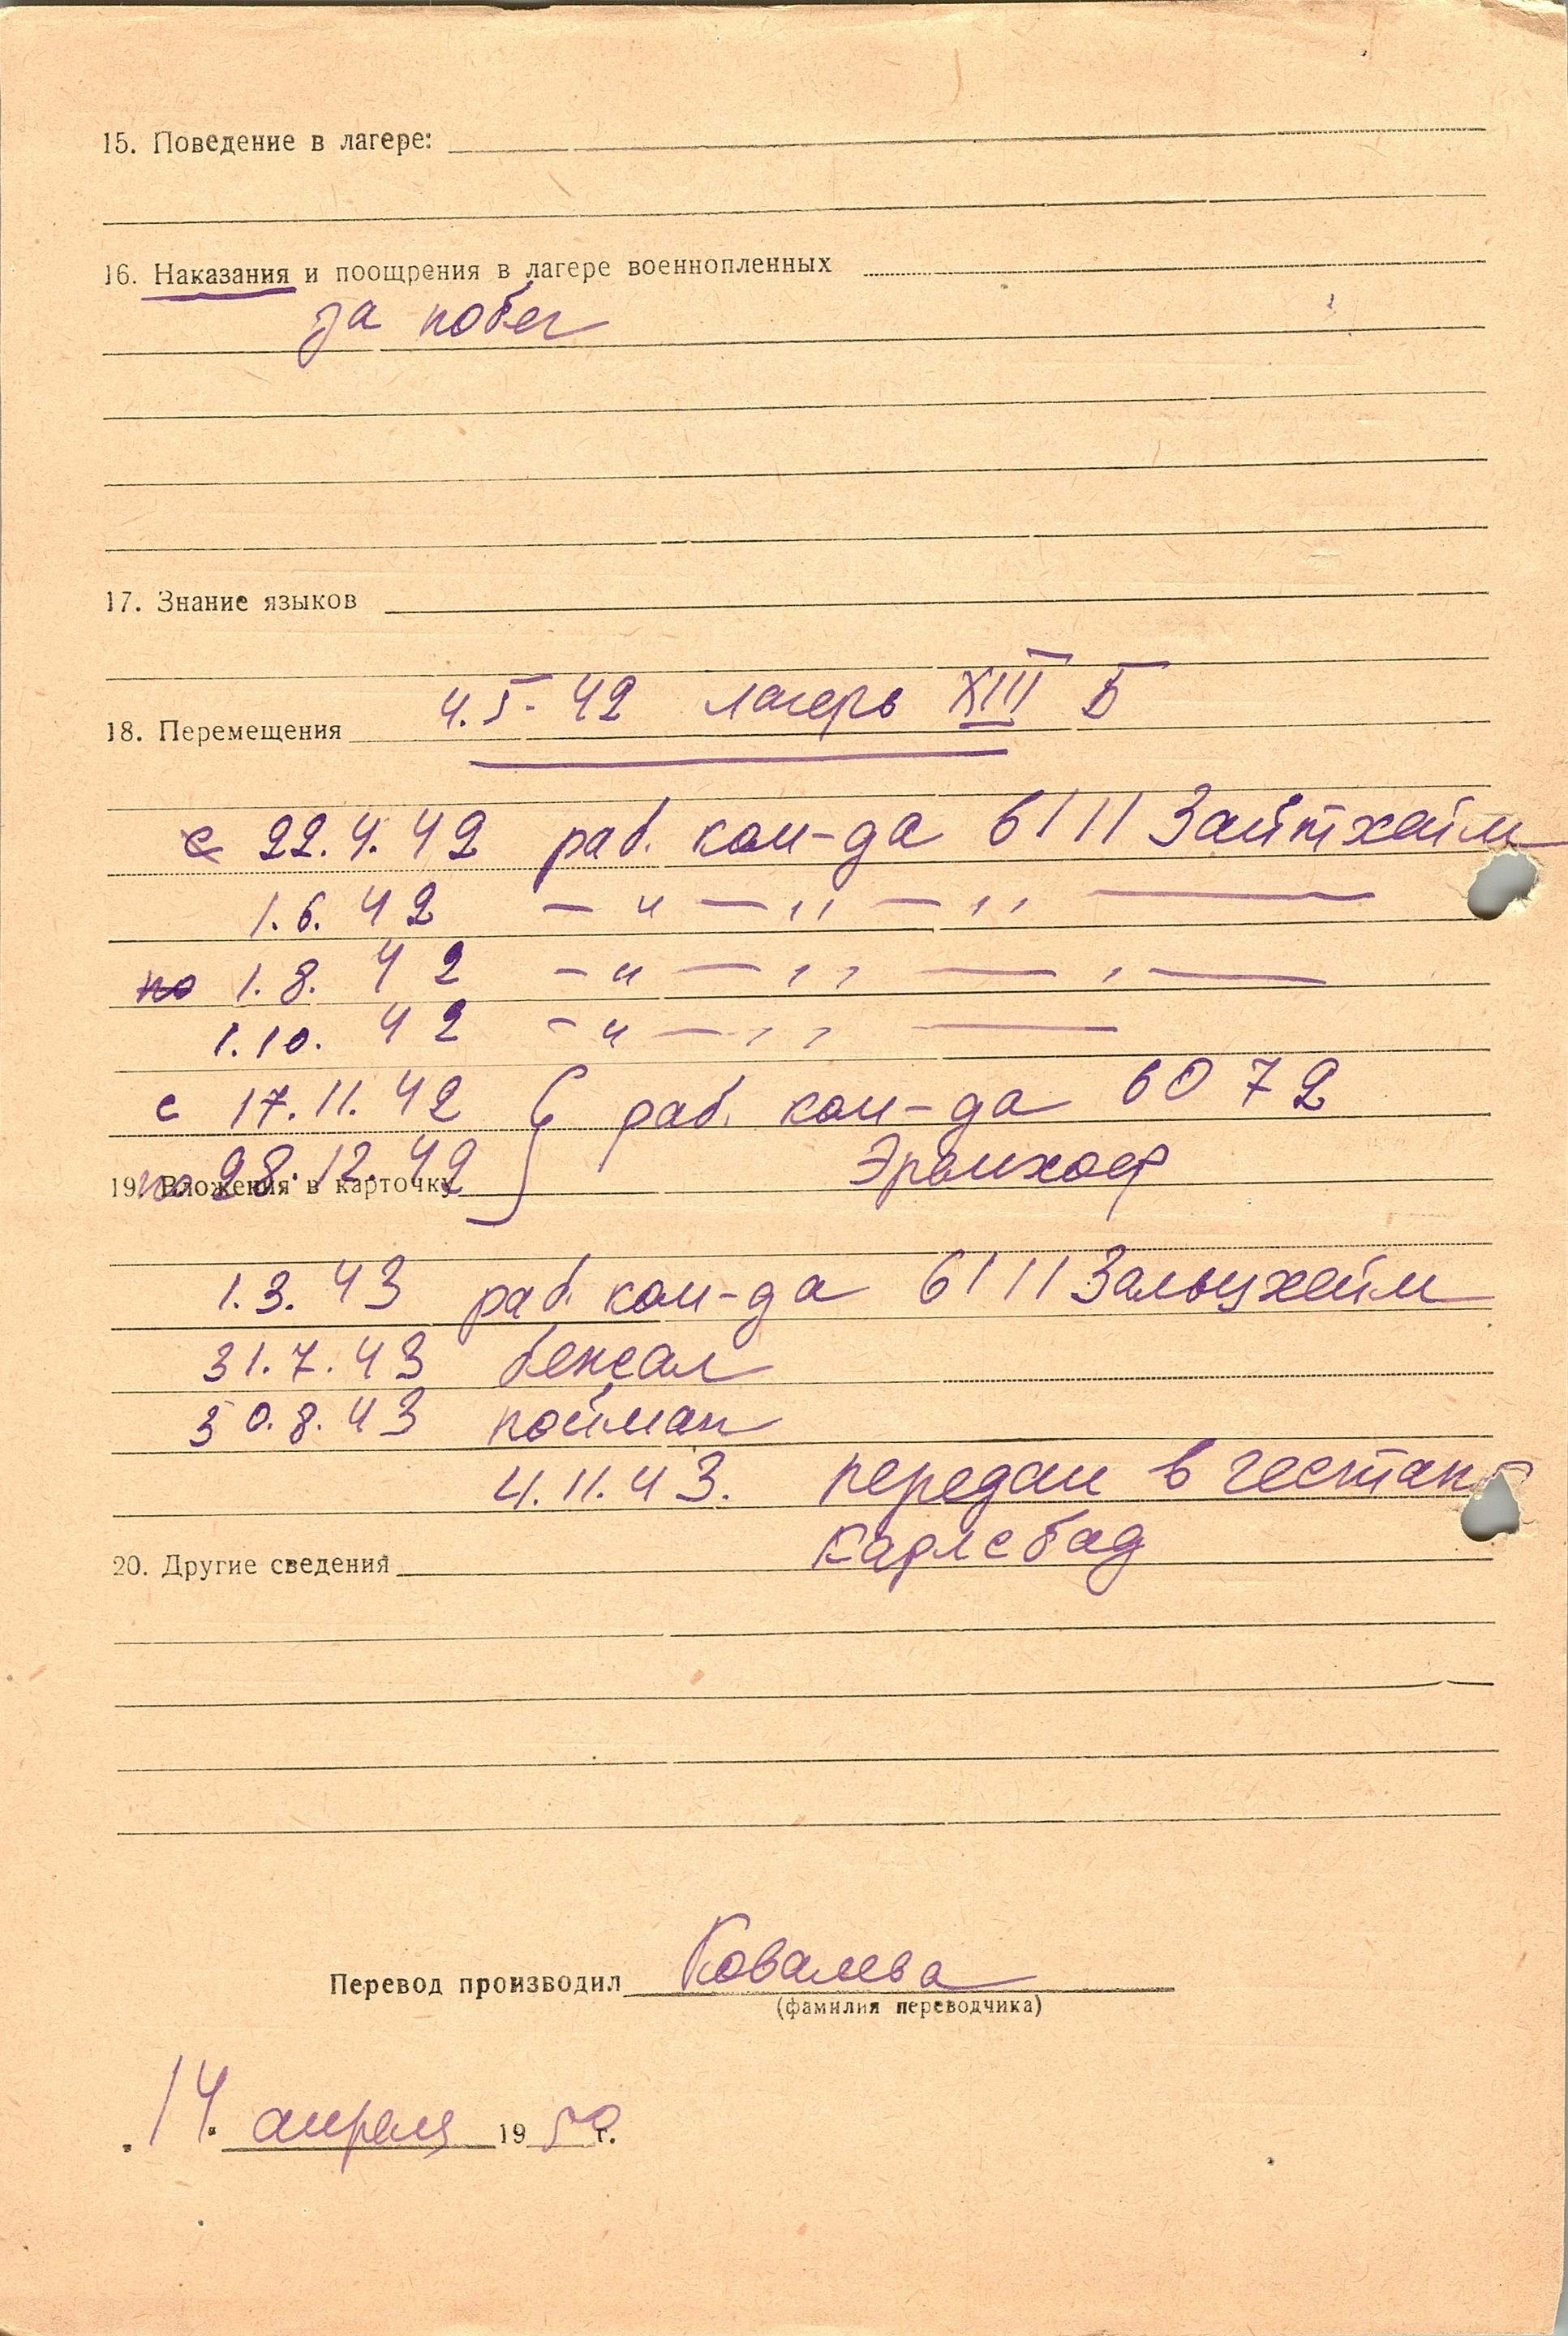 15. Поведение в лагере:
16. Наказания и поощрения в лагере военнопленных
за побег
17. Знание языков
4.5.42 лагерь XIII Б
18. Перемещения
с 22.4.42 раб. ком-да 6111 Зайтхайм
1.6.42 — " — " — " —
по 1.8.42 — " — " — " —
1.10.42 — " — " —
с 17.11.42 раб. ком-да 6072
по 28.12.42 Эрамхоф
19. Вложения в карточку
1.3.43 раб. ком-да 6111 Зальцхейм
31.7.43 бежал
30.8.43 пойман
4.11.43. передан в гестапо
Карлсбад
20. Другие сведения
Перевод производил Ковалева
(фамилия переводчика)
"14" апреля 1950 г.